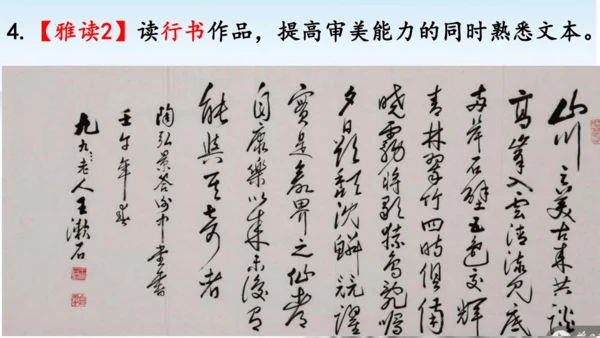 4.【雅读2】读行书作品，提高审美能力的同时熟悉文本。
山川之美古来共谈
高峯入雲清流见底
两岸石壁五色交輝
青林翠竹四時俱備
曉霧将歇猿鸟亂鳴
夕日欲頹沈鳞競躍
實是欲界之仙都
自康樂以来未復有
能與其奇者
陶弘景答谢中書書
壬午年春
九九老人王漱石